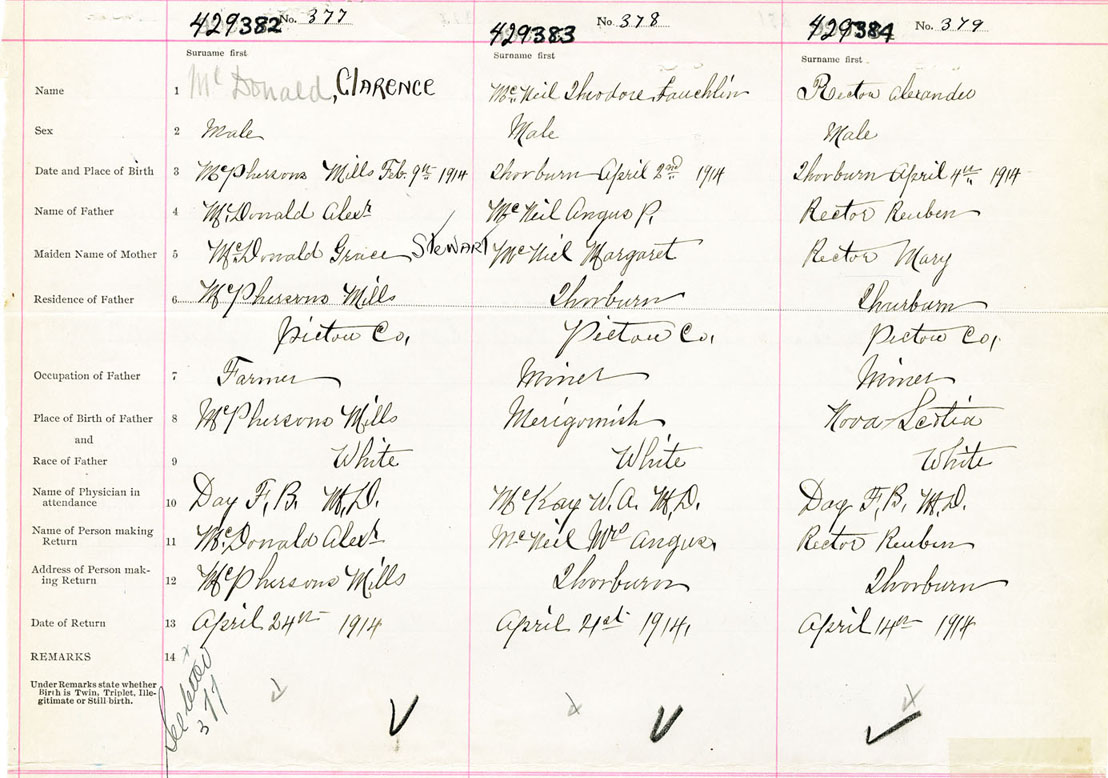 429382 No. 377 429383 No 378 429384 No. 379
Surname first Surname first Surname first
Name 1 McDonald, CLARENCE McNeil Theodore Lauchlin Rector Alexander
Sex 2 Male Male Male
Date and Place of Birth 3 McPhersons Mills Feb. 9th 1914 Thorburn April 2nd 1914 Thorburn April 4th 1914
Name of Father 4 McDonald Alexr McNeil Angus P. Rector Reuben
Maiden Name of Mother 5 McDonald Grace STEWART McNiel Margaret Rector Mary
Residence of Father 6 McPhersons Mills Thorburn Thorburn
Pictou Co, Pictou Co, Pictou Co,
Occupation of Father 7 Farmer Miner Miner
Place of Birth of Father 8 McPhersons Mills Merigomish Nova Scotia
and
Race of Father 9 White White White
Name of Physician in
attendance 10 Day F, B. M,D. McKay W. A. M,D. Day F, B, M, D.
Name of Person making
Return 11 McDonald Alexr McNeil Mrs Angus, Rector Reuben
Address of Person mak-
ing Return 12 McPhersons Mills Thorburn Thorburn
Date of Return 13 April 24th 1914 April 21st 1914, April 14th 1914
REMARKS 14 x
Under Remarks state whether
Birth is Twin, Triplet, Ille-
gitimate or Still-birth.
See letter
377